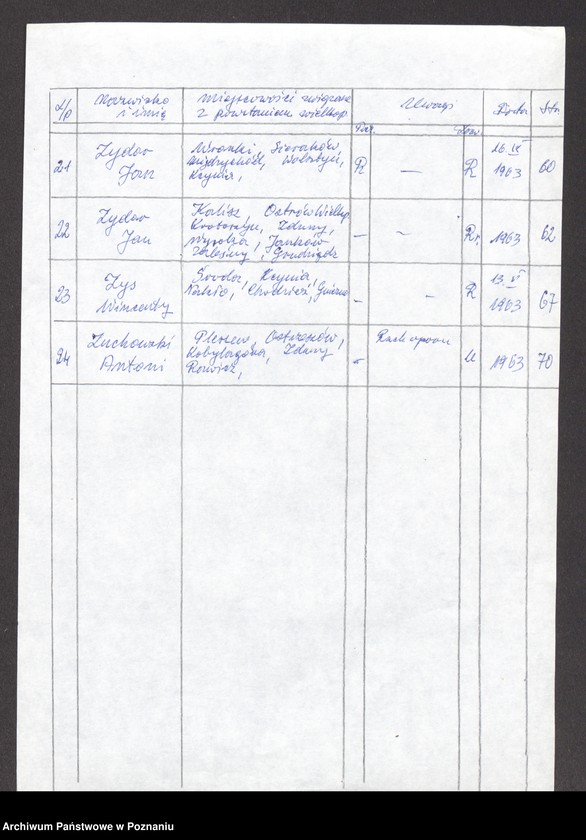 L/p Nazwisko i imię Miejscowości związane z powstaniem wielkop. Uwagi Data Str.
21 Zydor Jan Wronki, Sieraków, Międzychód, Wolsztyn, Kcynia, R — R 26 IV 1963 60
22 Zydor Jan Kalisz, Ostrów Wielkp. Krotoszyn, Zduny, Wysoka, Janków Zaleśny, Grudziądz — — R. 1963 62
23 Zys Wincenty Kcynia, Nakło, Chodzież, Gniezno — — R 13. VI 1963 67
24 Żuchowski Antoni Pleszew, Ostrzeszów, Kobylagóra, Zduny Rawicz, — U 1963 70
Archiwum Państwowe w Poznaniu